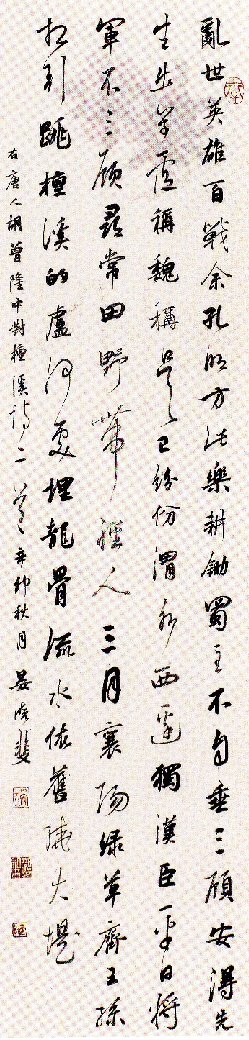 亂世英雄百戰余孔明方此樂耕鋤蜀主不自垂三顧安得先
生出草廬稱魏稱吳已紛份渭水西邊獨漢臣平日將
軍不三顧尋常田野帶經人三月襄陽綠草齊王孫
相引跳檀溪的盧何處埋龍骨流水依舊繞大堤
右唐人胡曾隆中對檀溪詩二首辛卯秋月